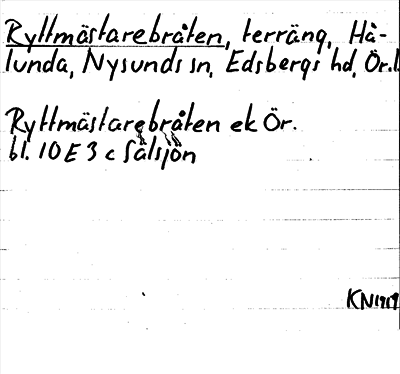 Ryttmästarebråten, terräng, Hå-
lunda, Nysunds sn, Edsbergs hd, Ör.l
Ryttmästarebråten ek Ör.
bl. 10 E 3 c Sålsjön
KN1919